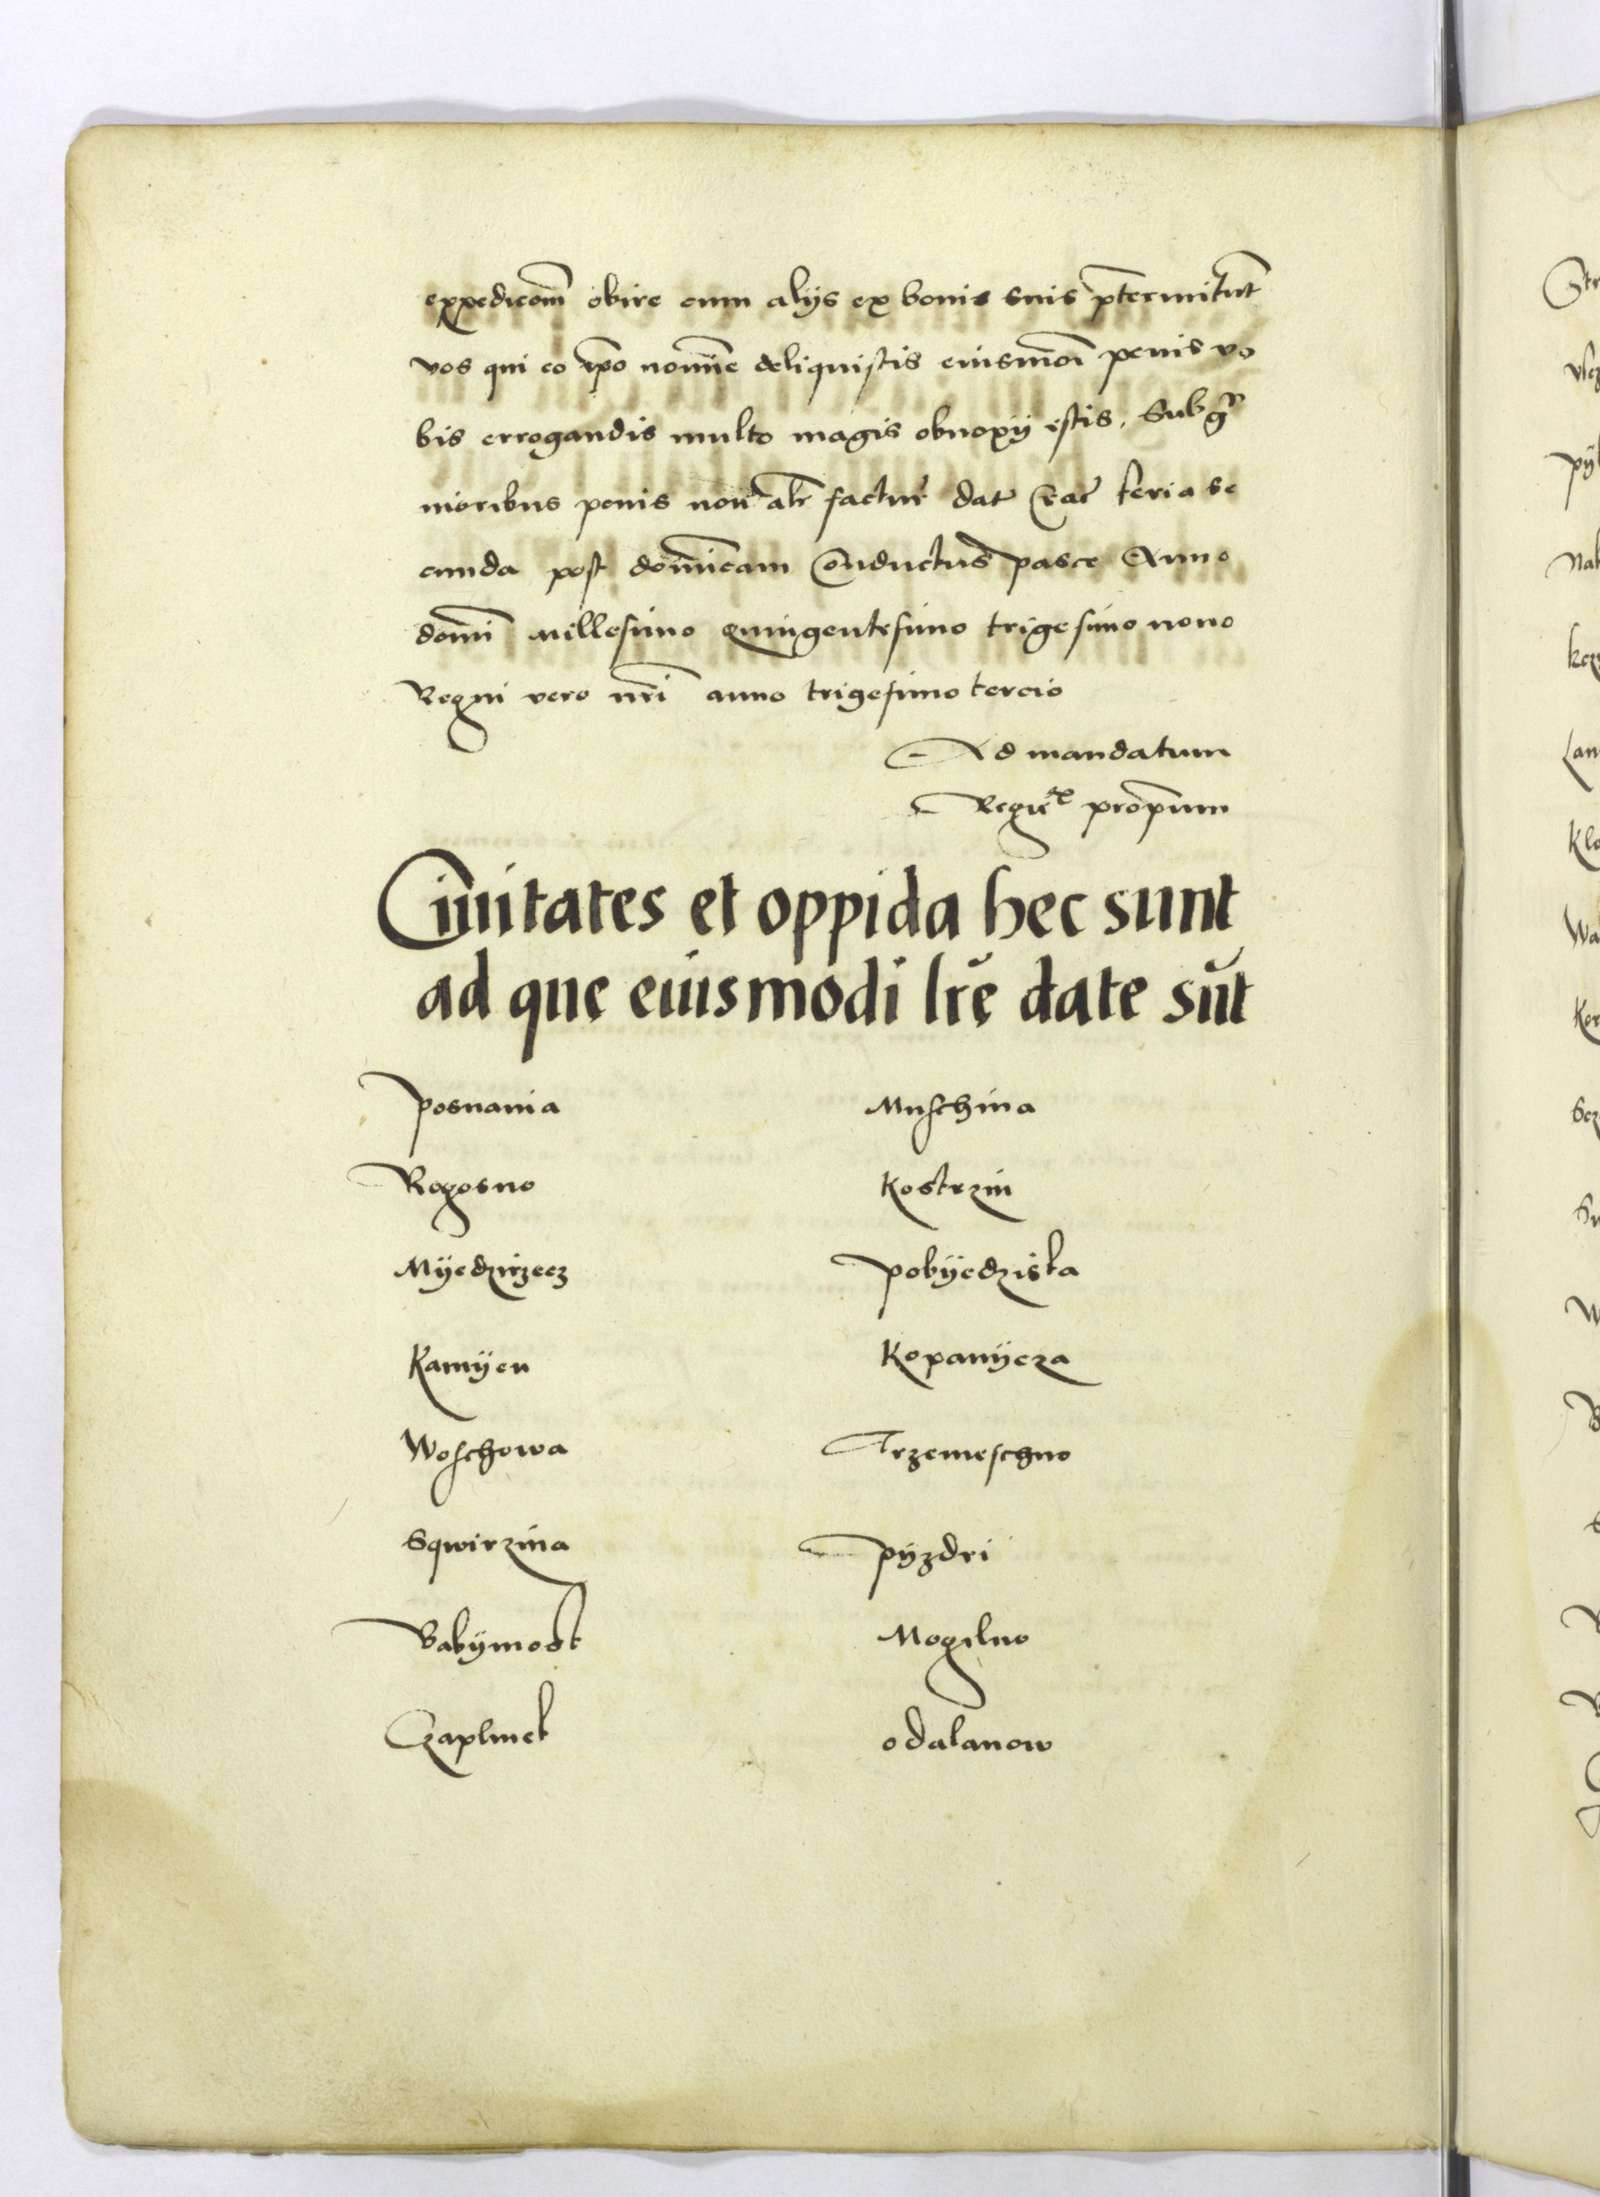 expedicom̄ obire cum alijs ex bonis suis p̄termitūt
vos qui eo ip̄o nomīe deliquistis eiusmōi penis vo
bis errogandis multo magis obnoxij estis. Sub gr̄
nioribus penis non alr̄ factur̄ dat Crac̄ feria se
cunda post domīcam Conductus pasce Anno
domī millesimo quingentesimo trigesimo nono
Regni vero nr̄i anno trigesimo tercio
Ad mandatum
Regie proprium
Ciuitates et oppida hec sunt
ad quę eiusmodi lr̄ę date sūt
Posnania
Rogosno
Myedzirzecz
Kamÿen
Woschowa
Sqwirzina
Babÿmost
Czaplinek
Muschina
Kostrzin
Pobÿedziska
Kopanÿcza
Trzemeschno
Pÿzdri
Mogilno
Odalanow